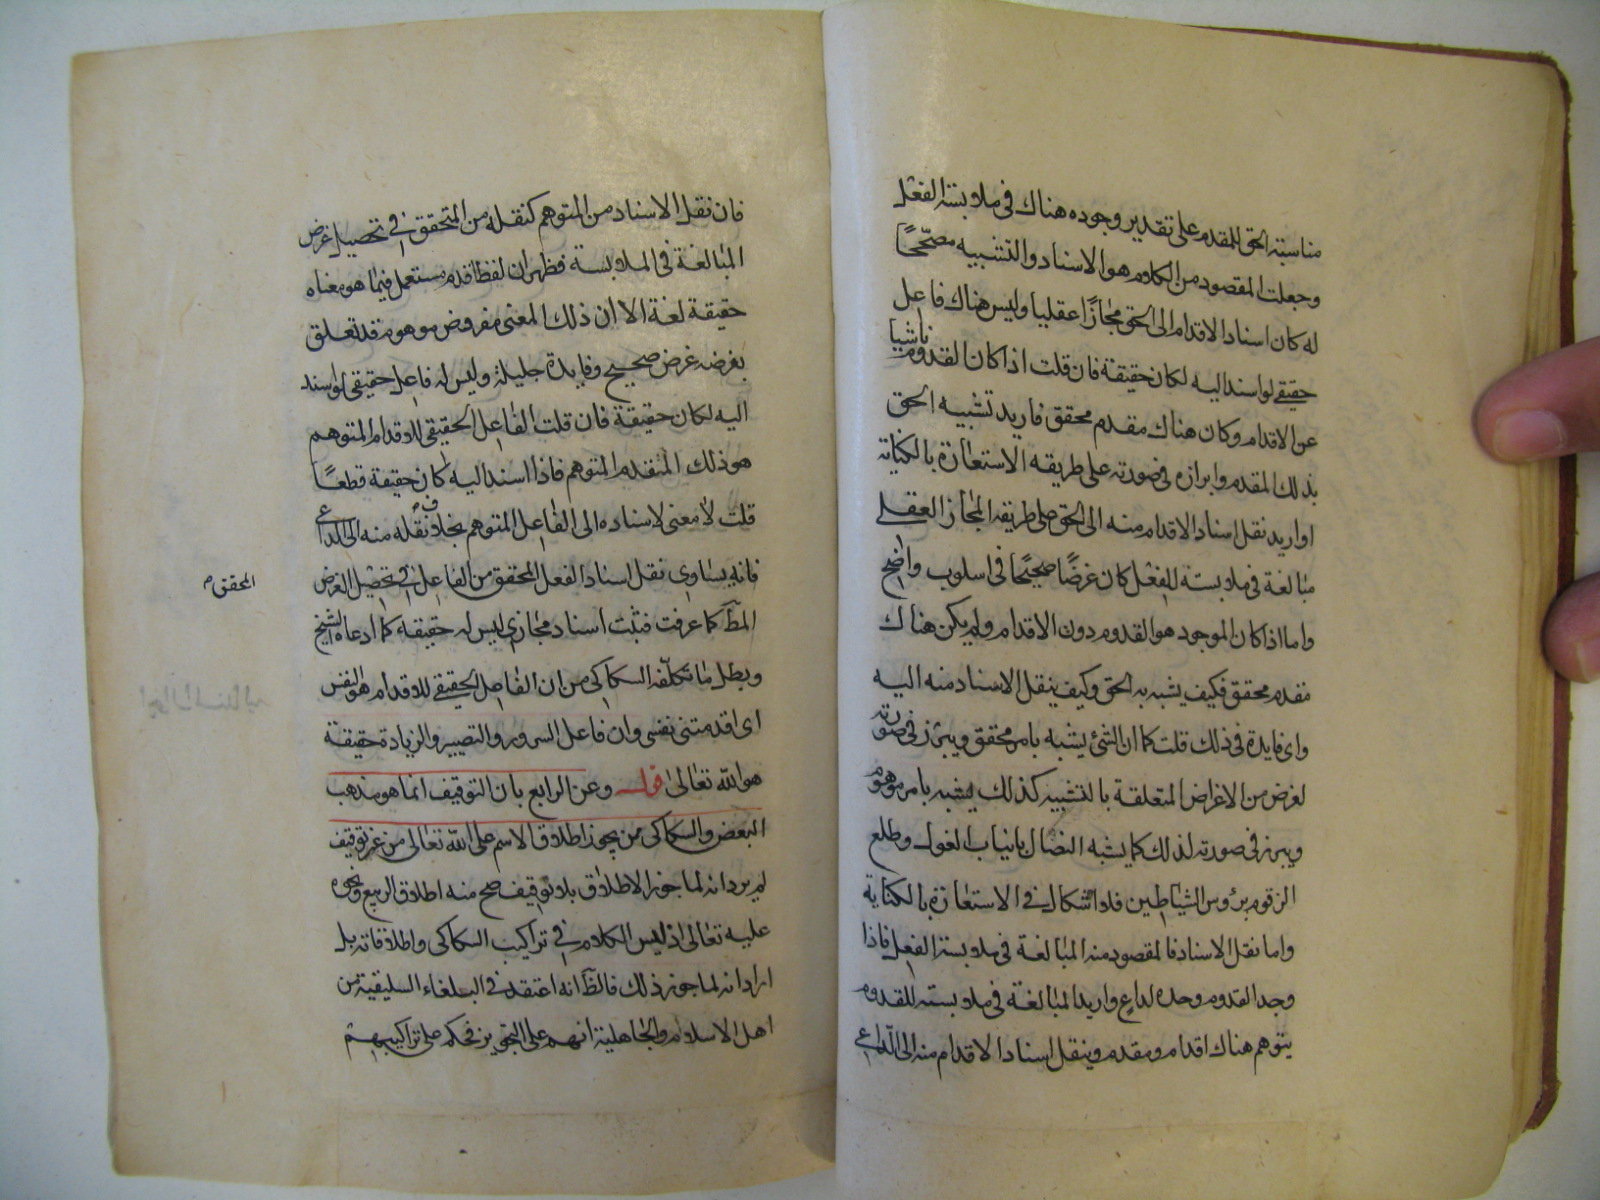 مناسبته الحق للمقدم على تقدير وجوده هناك في ملابسته الفعل
وجعلت المقصود من الكلام هو الاسناد والتشبيه مصححًا
له كان اسناد الاقدام الى الحق مجازًا عقليا وليس هناك فاعل
حقيقي لو اسند اليه لكان حقيقة فان قلت اذا كان القدوم ناشيا
عن الاقدام وكان هناك مقدم محقق فاريد تشبيه الحق
بذلك المقدم وابرازه في صورته على طريقه الاستعارة بالكناية
او اريد نقل اسناد الاقدام منه الى الحق على طريقه المجاز العقلي
مبالغة في ملابسته للفعل كان غرضًا صحيحًا في اسلوب واضح
واما اذا كان الموجود هو القدوم دون الاقدام ولم يكن هناك
مقدم محقق فكيف يشبه به الحق وكيف ينقل الاسناد منه اليه
واي فايدة في ذلك قلت كما ان الشئ يشبه بامر محقق ويبرز في صورته
لغرض من الاغراض المتعلقة بالتشبيه كذلك يشبه بامر موهوم
ويبرز في صورته لذلك كما يشبه النصال بانياب الغول وطلع
الزقوم برؤس الشياطين فلا اشكال في الاستعارة بالكناية
واما نقل الاسناد فالمقصود منه المبالغة في ملابسته الفعل فاذا
وجد القدوم وحده لداعٍ واريد المبالغة في ملابسته للقدوم
يتوهم هناك اقدام ومقدم وينقل اسناد الاقدام منه الى الداعي
فان نقل الاسناد من المتوهم كنقله من المتحقق في تحصيل غرض
المبالغة في الملابسة فظهر ان لفظ اقدم مستعمل فيما هو معناه
حقيقة لغة الا ان ذلك المعنى مفروض موهوم قد تعلق
بفرضه غرض صحيح وفايدة جليلة وليس له فاعل حقيقي لو اسند
اليه لكان حقيقة فان قلت الفاعل الحقيقي للاقدام المتوهم
هو ذلك المتقدم المتوهم فاذا اسند اليه كان حقيقة قطعًا
قلت لا معنى لاسناده الى الفاعل المتوهم بخلاف نقله منه الى الداعي
فانه يساوي نقل اسناد الفعل المحقق من الفاعل في تحصيل الغرض
المحقق م
المط كما عرفت فثبت اسناد مجازي ليس له حقيقة كما ادعاه الشيخ
وبطل ما تكلفه السكاكي من ان الفاعل الحقيقي للاقدام هو النفس
اى اقدمتنى نفسى وان فاعل السرور والتصيير والزيادة حقيقة
هو الله تعالى قوله وعن الرابع بان التوقيف انما هو مذهب
البعض والسكاكي من يجوز اطلاق الاسم على الله تعالى من غير توقيف
لم يرد انه لما جوز الاطلاق بلا توقيف صح منه اطلاق الربيع ونحوه
عليه تعالى اذ ليس الكلام في تراكيب السكاكي واطلاقاته بل
اراد انه لما جوز ذلك فالظ انه اعتقد في البلغاء السليقية من
اهل الاسلام والجاهلية انهم على التجويز فحكم على تراكيبهم